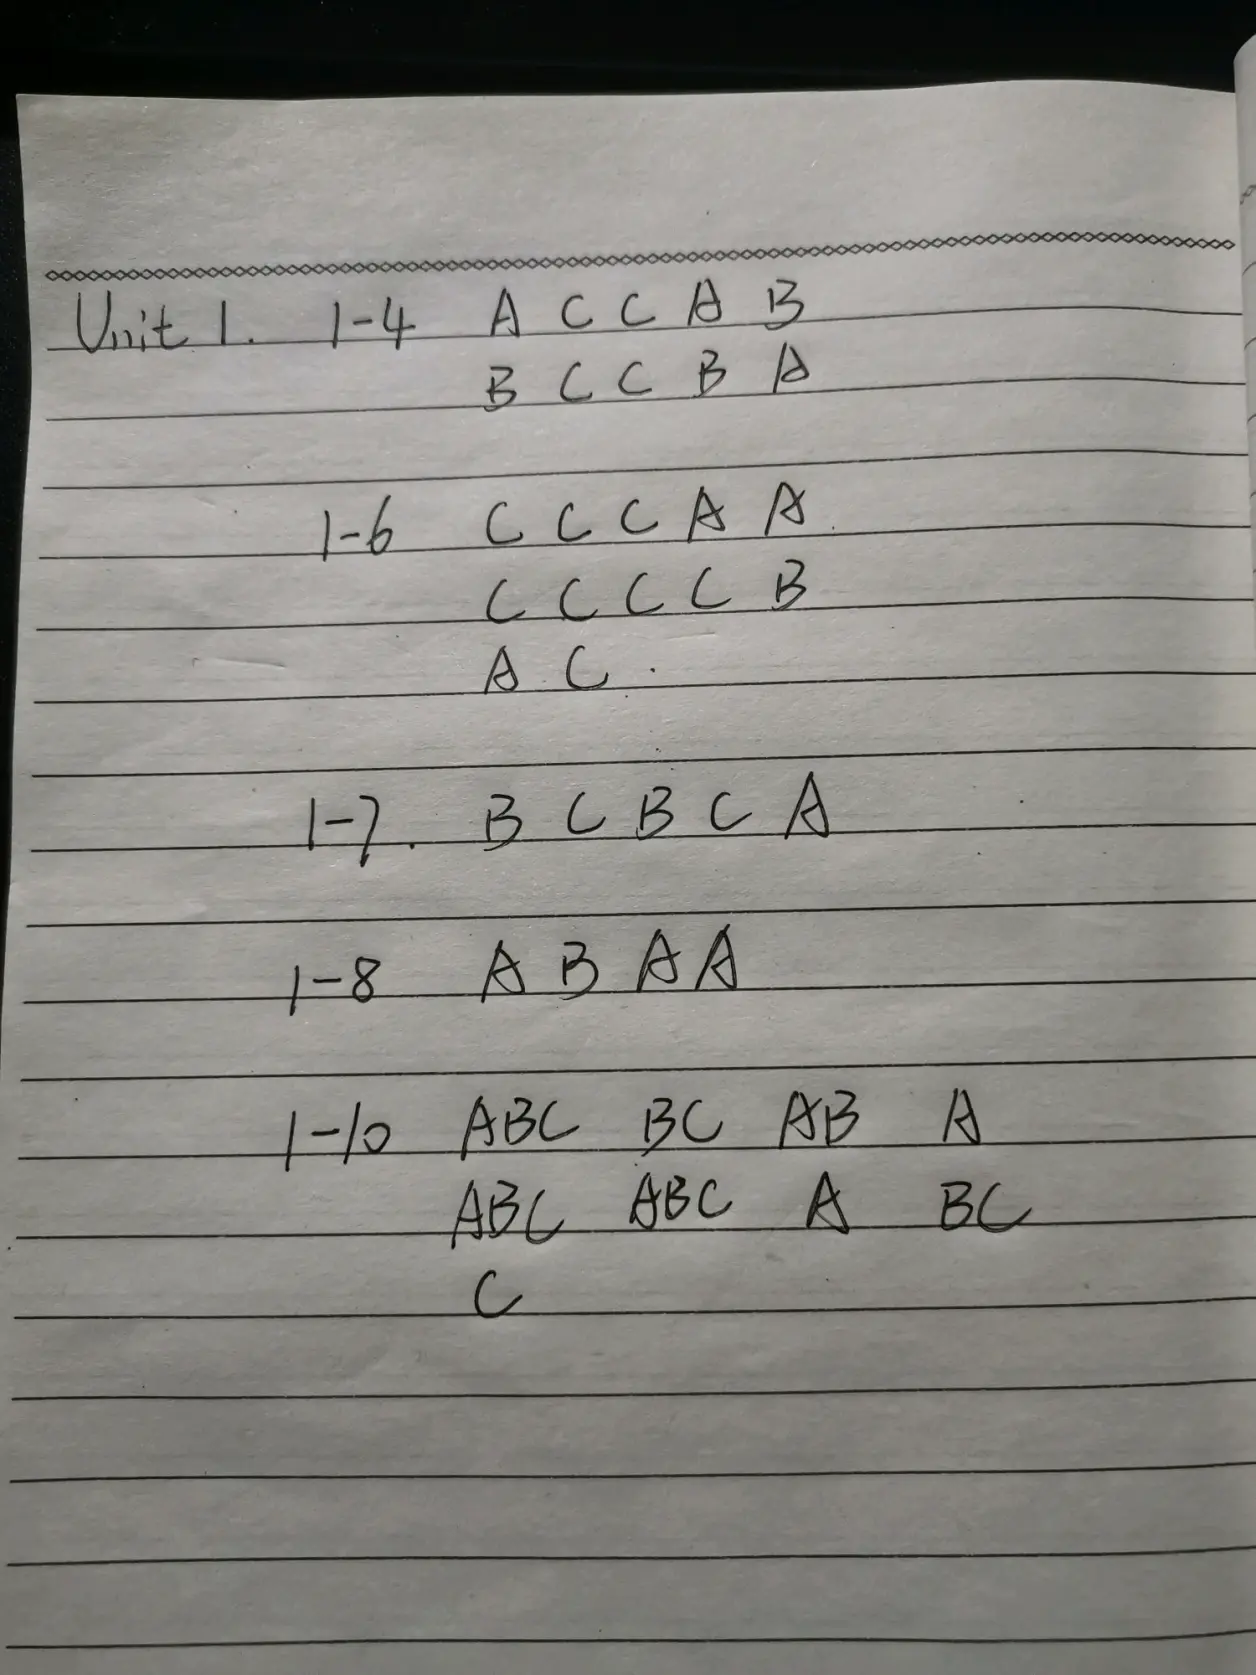 Unit 1. 1-4 A C C A B
B C C B A
1-6 C C C A A
C C C C B
A C
1-7. B C B C A
1-8 A B A A
1-10 ABC BC AB A
ABC ABC A BC
C